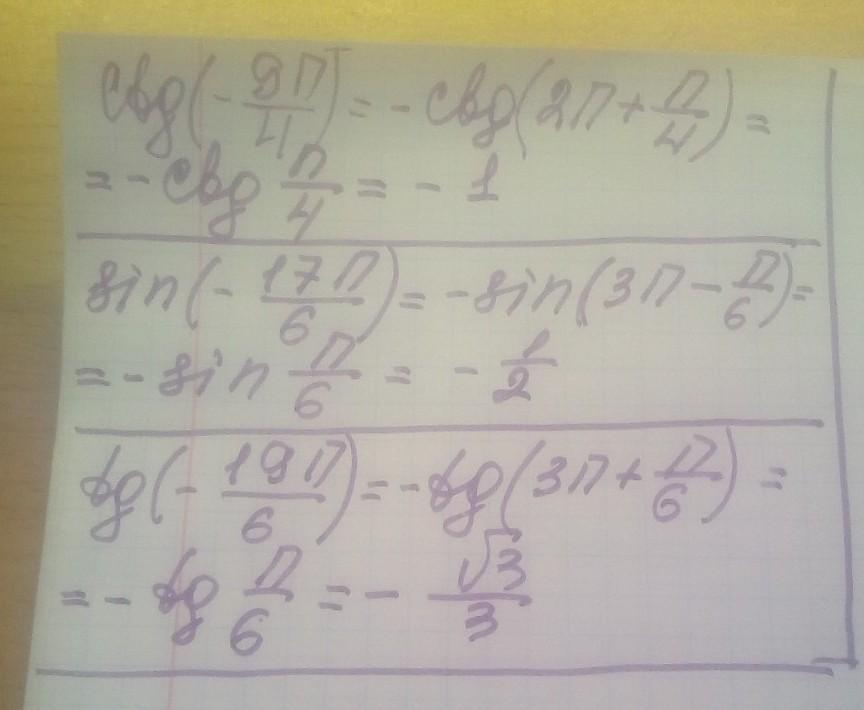 ctg(-9π/4) = -ctg(2π+π/4) =
= -ctg π/4 = -1
sin(-17π/6) = -sin(3π-π/6) =
= -sin π/6 = -1/2
tg(-19π/6) = -tg(3π+π/6) =
= -tg π/6 = -√3/3